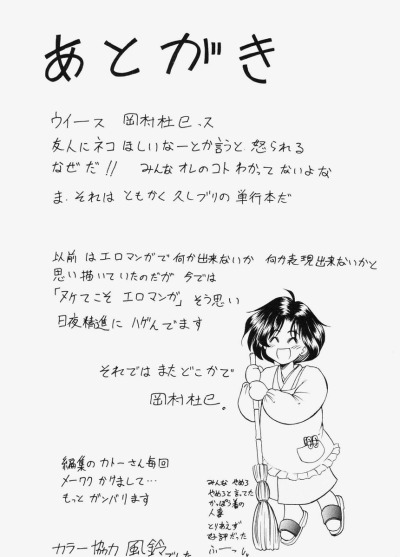 あとがき
ウイース 岡村杜巳、ス
友人にネコ ほしいなーとか言うと 怒られる
なぜだ!! みんな オレのコト わかって ないよな
ま、それは ともかく 久しブリの 単行本だ
以前 はエロマンガで 何か出来ないか 何か表現出来ないかと
思い描いていたのだが 今では
「ヌケてこそ エロマンガ」 そう思い
日夜精進に ハゲんでます
それでは またどこかで
岡村杜巳。
編集の カトーさん毎回
メーワク かけまして…
もっと ガンバります
みんな やめろ
やめろと言ってた
かっぽう着の
人妻
とりあえず
好評だった
ふーっし。
カラー協力 風鈴でした